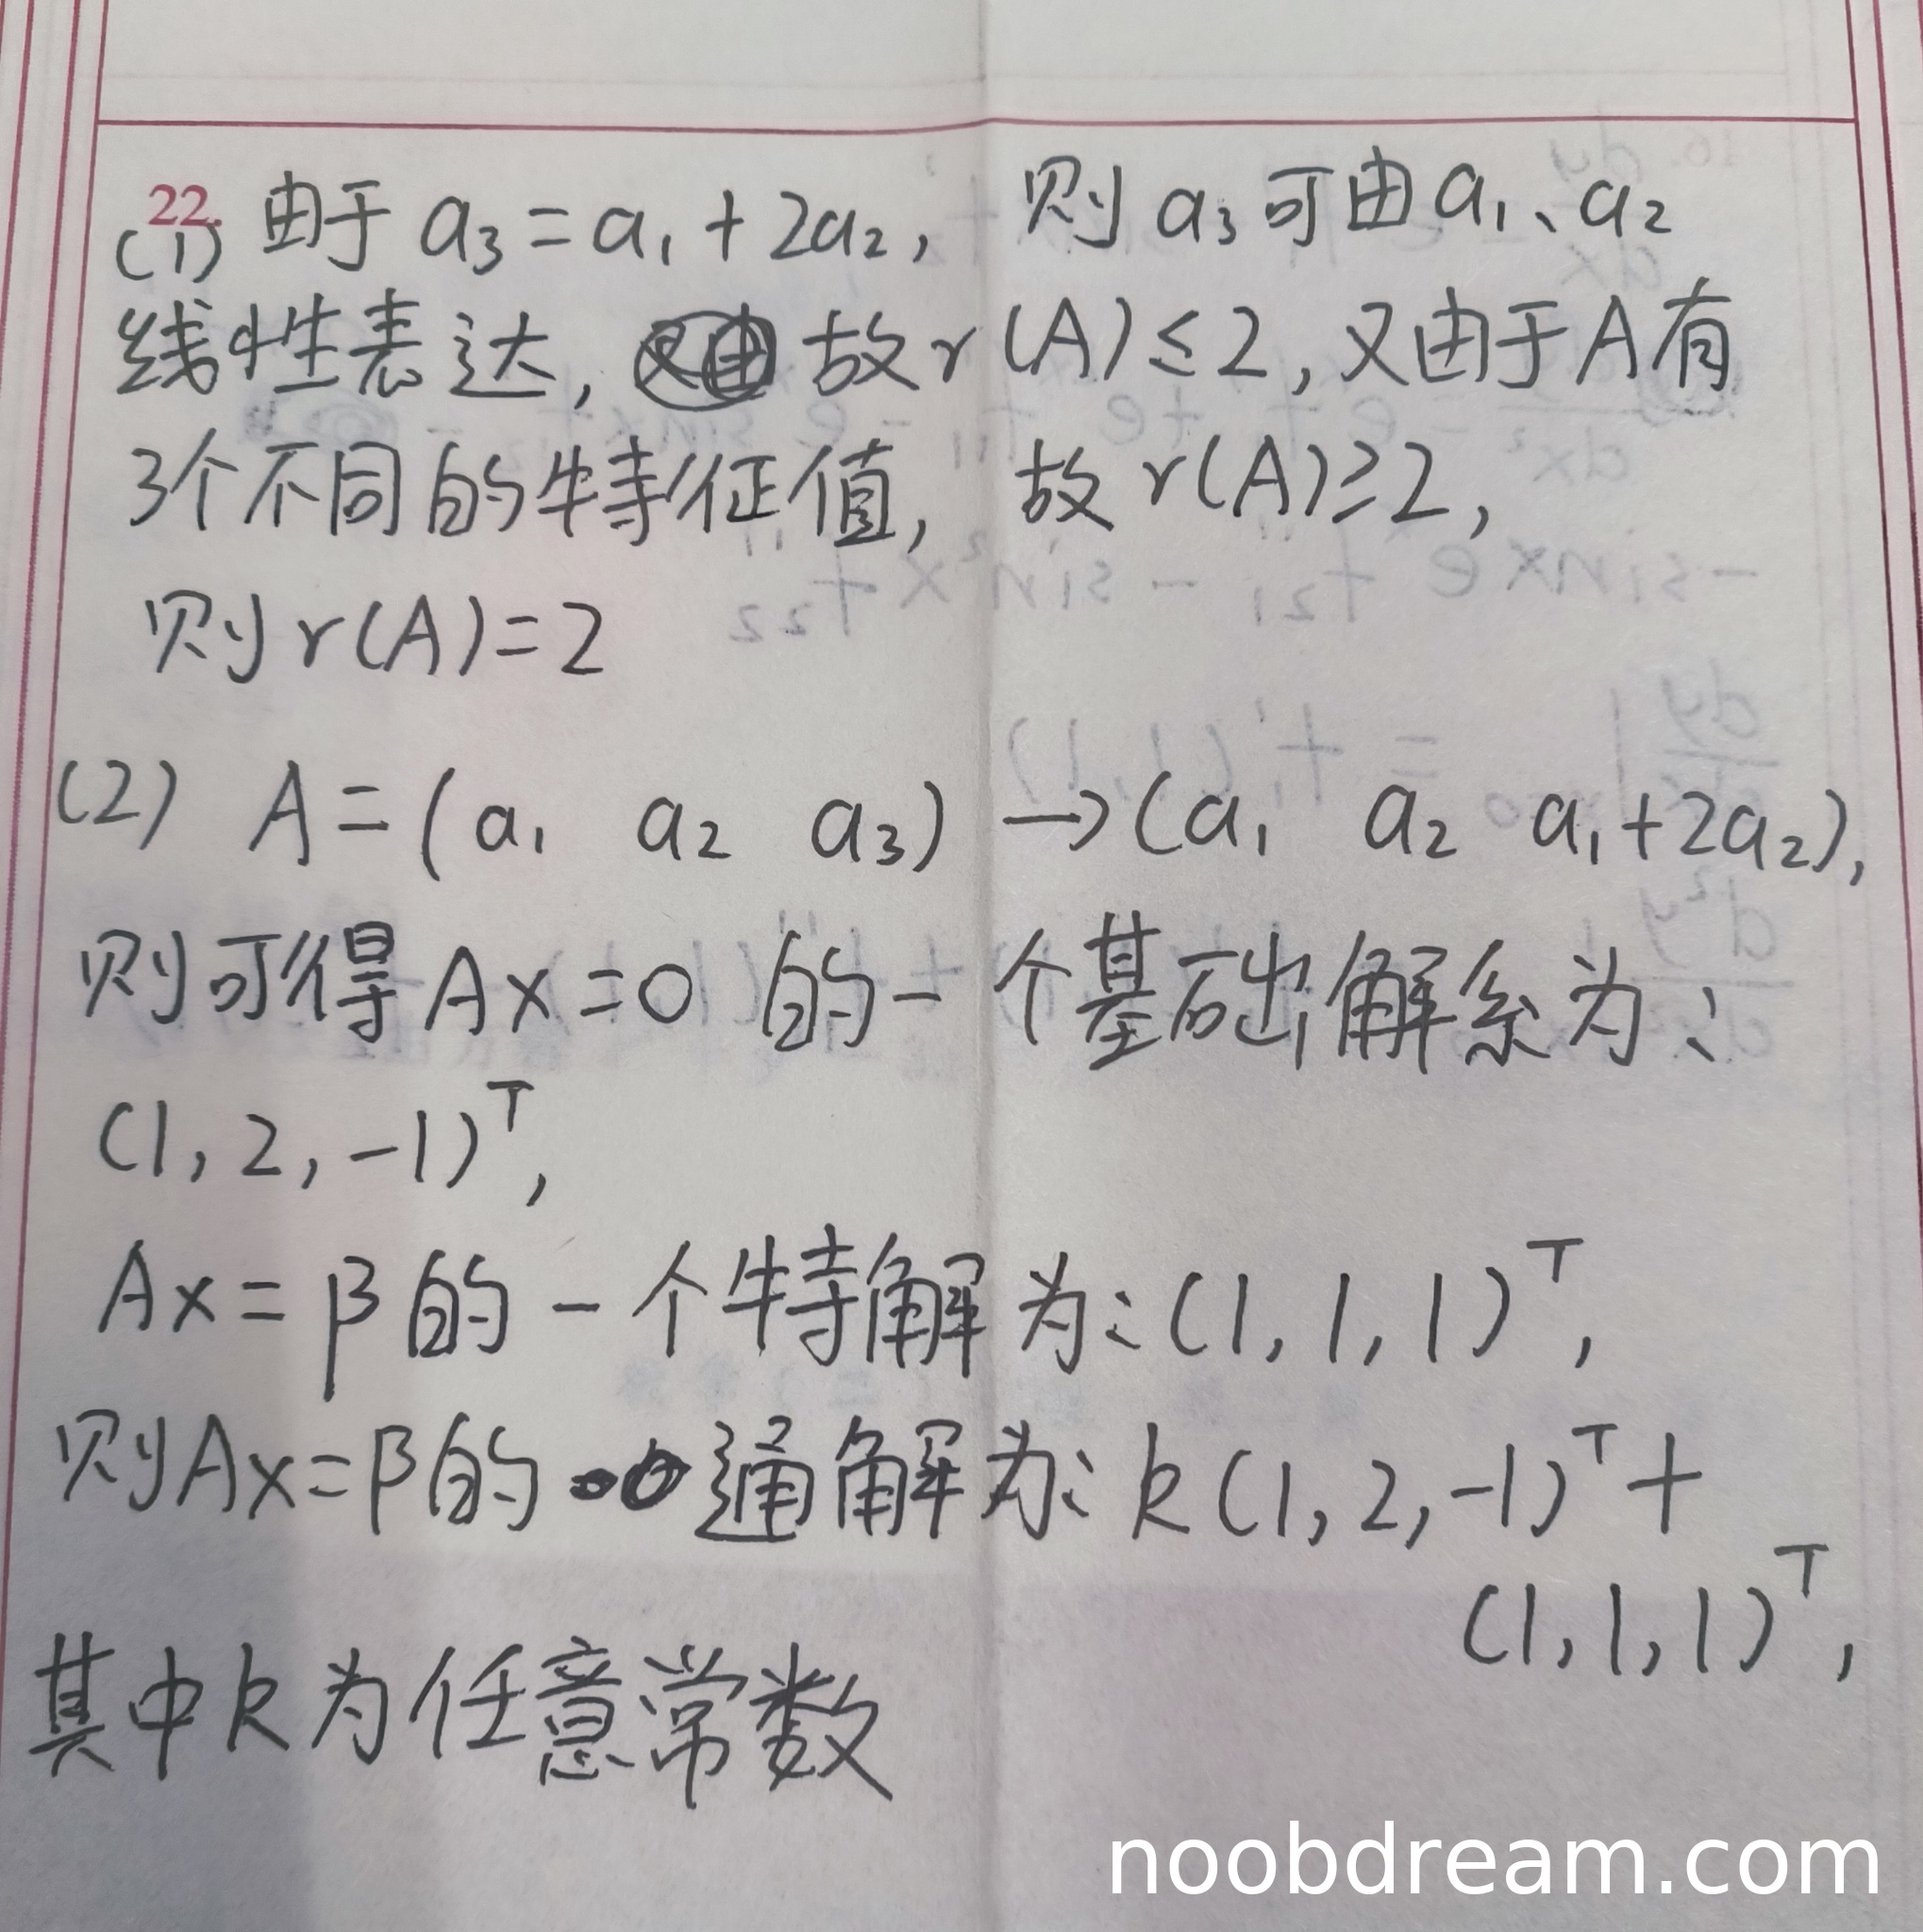 22.
(1) 由于 a₃ = a₁ + 2a₂, 则 a₃ 可由 a₁、a₂
线性表达, 故 r(A) ≤ 2, 又由于 A 有
3个不同的特征值, 故 r(A) ≥ 2,
则 r(A) = 2
(2) A = (a₁ a₂ a₃) → (a₁ a₂ a₁+2a₂),
则可得 Ax = 0 的一个基础解系为:
(1, 2, -1)ᵀ,
Ax = β 的一个特解为: (1, 1, 1)ᵀ,
则 Ax = β 的通解为: k(1, 2, -1)ᵀ +
(1, 1, 1)ᵀ,
其中 k 为任意常数
noobdream.com